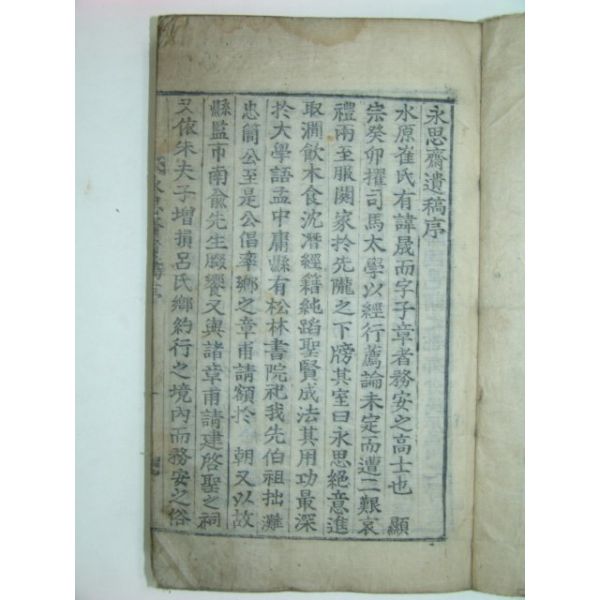 永思齋遺稿序
水原崔氏有諱晟而字子章者務安之高士也　顯
宗癸卯擢司馬太學以經行薦論未定而遭二艱哀
禮兩至服闋家於先隴之下牓其室曰永思絶意進
取澗飮木食沈潛經籍純蹈聖賢成法其用功最深
於大學語孟中庸縣有松林書院祀我先伯祖拙灘
忠簡公至是公倡率鄕之章甫請額於　朝又以故
縣監市南兪先生腏饗又與諸章甫請建啓聖之祠
又依朱夫子增損呂氏鄕約行之境內而務安之俗
永思齋遺稿序